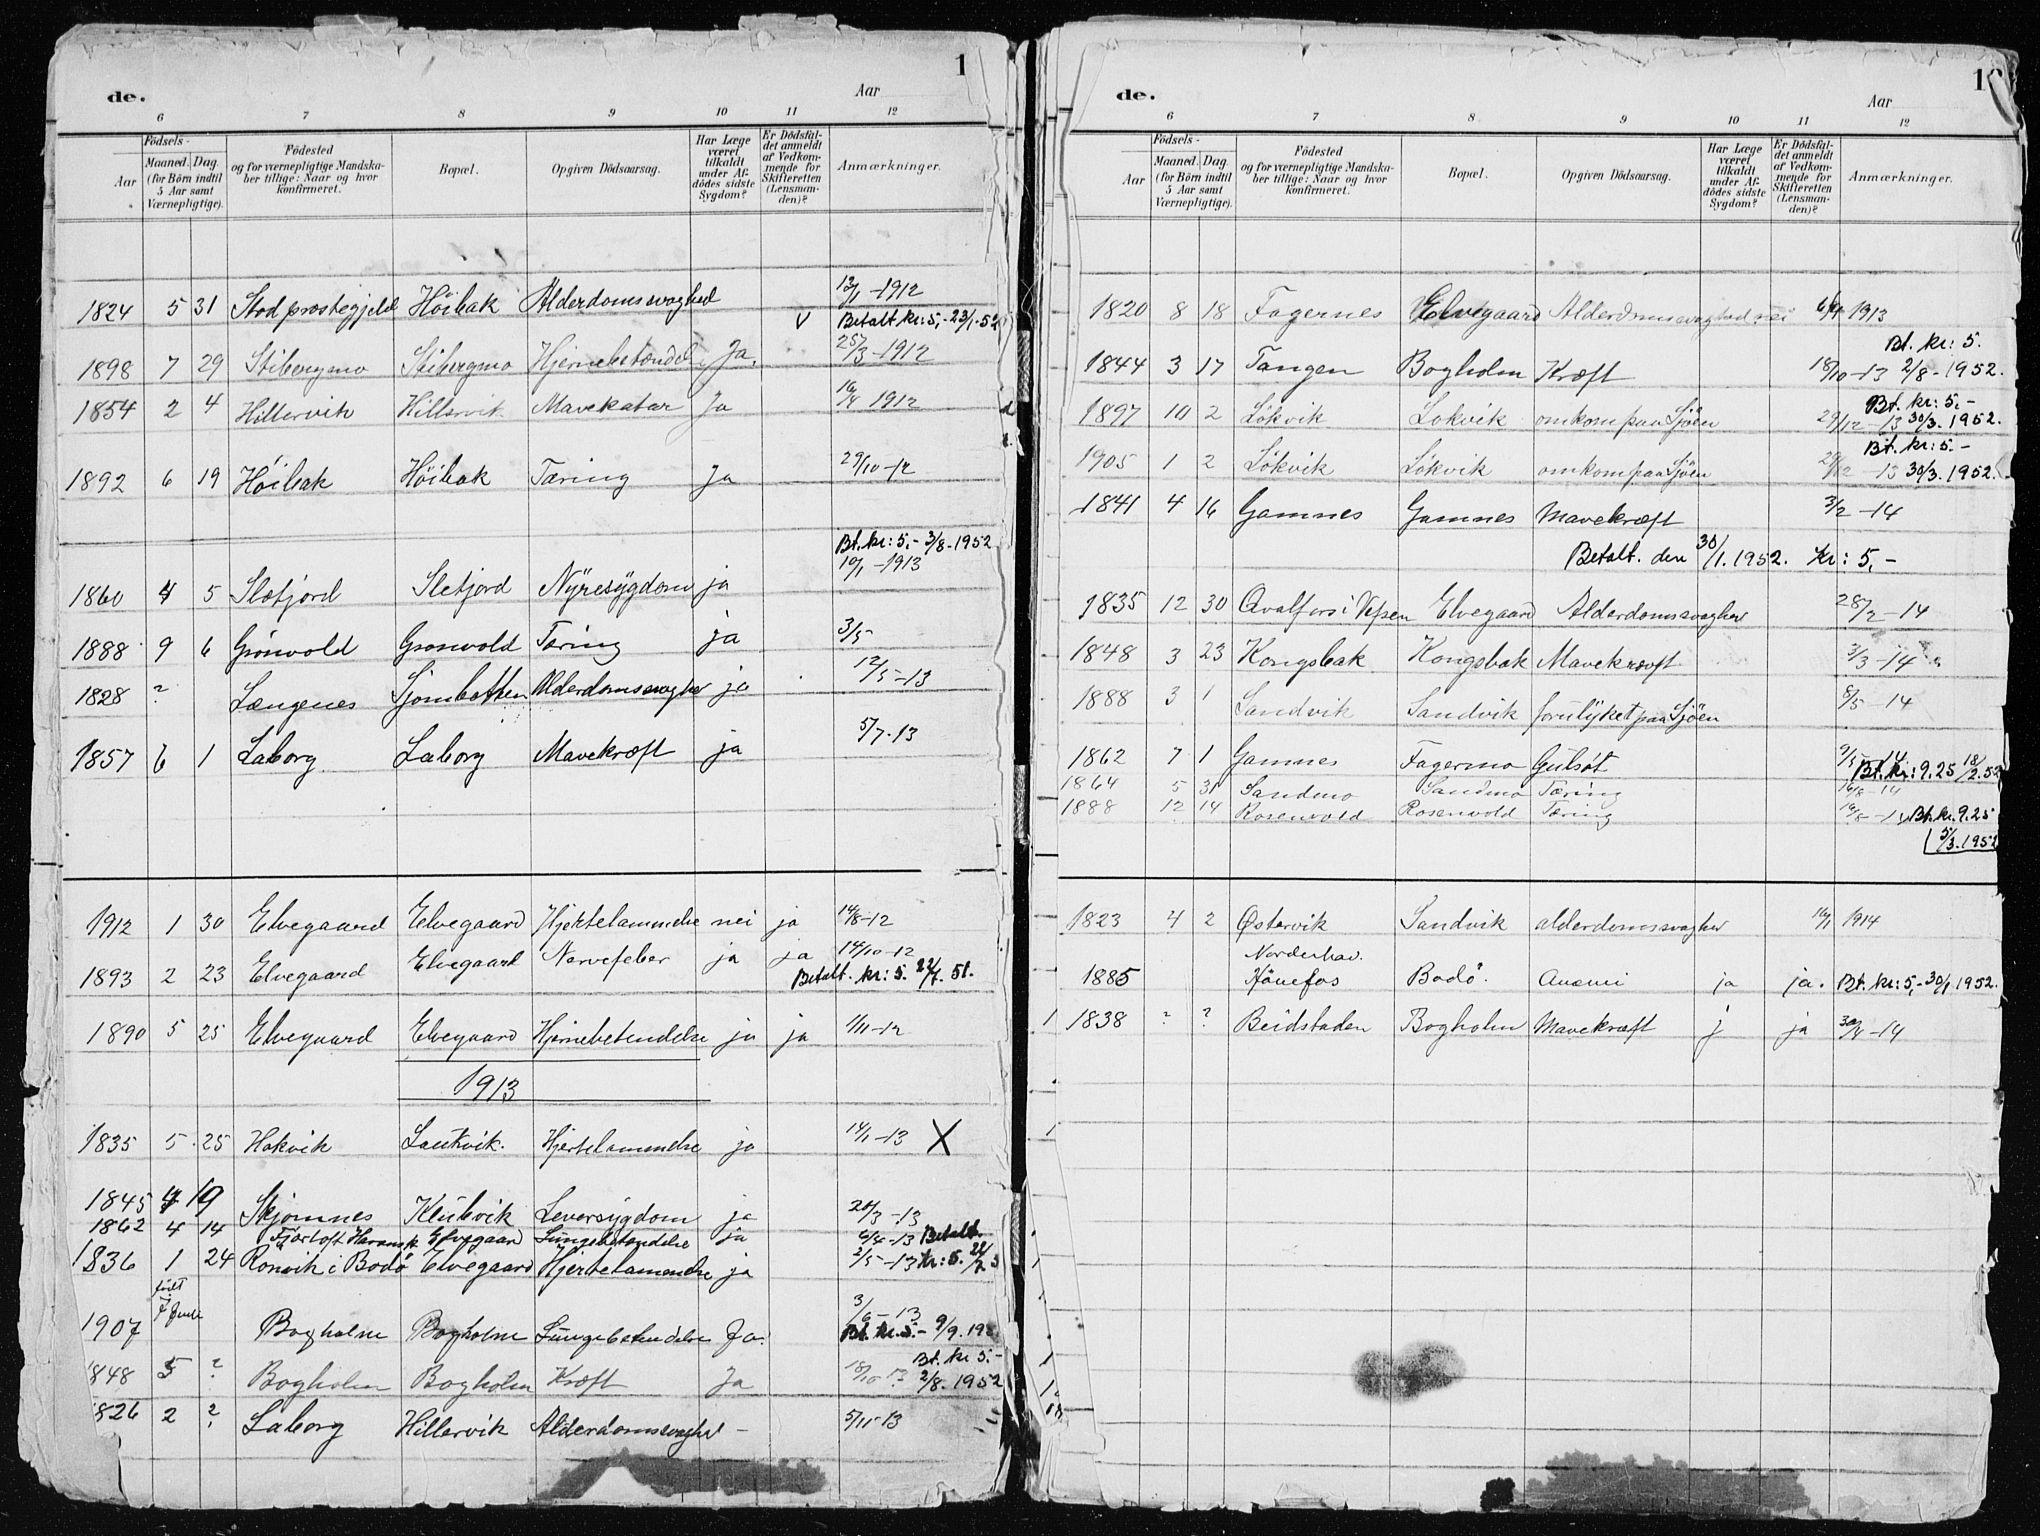 de.
1
Aar
6 7 8 9 10 11 12
Aar
Födsels-
Maaned. Dag.
(for Børn indtil
5 Aar samt
Værnepligtige).
Födested
og for værnepligtige Mandska-
ber tillige: Naar og hvor
konfirmeret.
Bopæl.
Opgiven Dödsaarsag.
Har Læge
været
tilkaldt
under Af-
dødes sidste
Sygdom?
Er Dödsfal-
det anmeldt
af Vedkom-
mende for
Skifteretten
(Lensman-
den)?
Anmærkninger.
1824 5 31 Stod prestegjeld Höibak Alderdomssvaghed 13/1 -1912
V Betalt. kr: 5,- 23/1-52
1898 7 29 Stibergmo Stibergmo Hjernebetændel Ja. 25/3 -1912
1854 2 4 Hillervik Hillervik Mavekatar Ja 16/4 1912
1892 6 19 Höibak Höibak Tæring Ja 29/10-12
Bt. kr: 5,- 3/8-1952
1860 4 5 Sletjord Sletjord Nyresygdom ja 10/1 -1913
1888 9 6 Grönvold Gronvold Tæring ja 3/5
1828 ? Længenes Sjombotten Alderdomssvaghed ja 12/5-13
1857 6 1 Laborg Laborg Mavekræft ja 5/7-13
1912 1 30 Elvegaard Elvegaard Hjertelammelse nei ja 14/8-12
1893 2 23 Elvegaard Elvegaard Nervefeber ja ja 14/10-12
Betalt. kr: 5. 22/7. 51.
1890 5 25 Elvegaard Elvegaard Hjernebetendelse ja ja 1/11-12
1913
1835 5 25 Hakvik Lankvik. Hjertelammelse ja 14/1-13 X
1845 4 19 Skjomnes Klubvik Leversygdom ja 20/3-13
1862 4 14 Fjørtoft Haramsk Elvegaard Lungebetendelse ja 6/4-13 Betalt
1836 1 24 Rönvik i Bodö Elvegaard Hjertelammelse ja 2/5-13 kr: 5. 22/2 5
født
7 Juni
1907 Bogholm Bogholm Lungebetendelse Ja. 3/6-13
Bt. kr. 5.- 9/9. 195
Bt. kr 5.-
1848 5 ? Bogholm Bogholm Kræft Ja 18/10 13 2/8. 1952
1826 2 ? Laborg Hillervik Alderdomssvaghed - 5/11-13
de.
Aar
6 7 8 9 10 11 12
Aar
Födsels-
Maaned. Dag.
(for Børn indtil
5 Aar samt
Værnepligtige).
Födested
og for værnepligtige Mandska-
ber tillige: Naar og hvor
konfirmeret.
Bopæl.
Opgiven Dödsaarsag.
Har Læge
været
tilkaldt
under Af-
dödes sidste
Sygdom?
Er Dödsfal-
det anmeldt
af Vedkom-
mende for
Skifteretten
(Lensman-
den)?
Anmærkninger.
1820 8 18 Fagernes Elvegaard Alderdomssvaghed nei 1913
Bt. kr: 5.
1844 3 17 Tangen Bogholm Kræft 18/10-13 2/8-1952.
Bt. kr: 5,-
1897 10 2 Lökvik Lokvik omkom paa Sjöen 29/12-13 30/3. 1952.
Bt. kr: 5.-
1905 1 2 Lökvik Lökvik omkom paa Sjöen 29/12-13 30/3. 1952.
1841 4 16 Gamnes Gamnes Mavekræft 3/2-14
Betalt. den 30/1. 1952. Kr: 5,-
1835 12 30 Qvalfors i Vefsen Elvegaard Alderdomssvaghed 28/2-14
1848 3 23 Kongsbak Kongsbak Mavekræft 3/3-14
1888 3 1 Sandvik Sandvik forulyket paa Sjöen 8/5-14
1862 7 1 Gamnes Fagermo Gulsöt 9/5 14
Bt. kr: 9.25 18/2.52
1864 5 31 Sandmo Sandmo Tæring 16/8-14
1888 12 14 Rosenvold Rosenvold Tæring 16/8-14 Bt. kr. 9.25
5/3.1952
1823 4 2 Østervik Sandvik alderdomssvaghed 16/1 1914
Norderhov.
1885 Hönefos Bodö. Anæmi ja ja. Bt. kr: 5,- 30/1 1952.
1838 ? ? Beidstaden Bogholm Mavekræft j ja 30/4-14